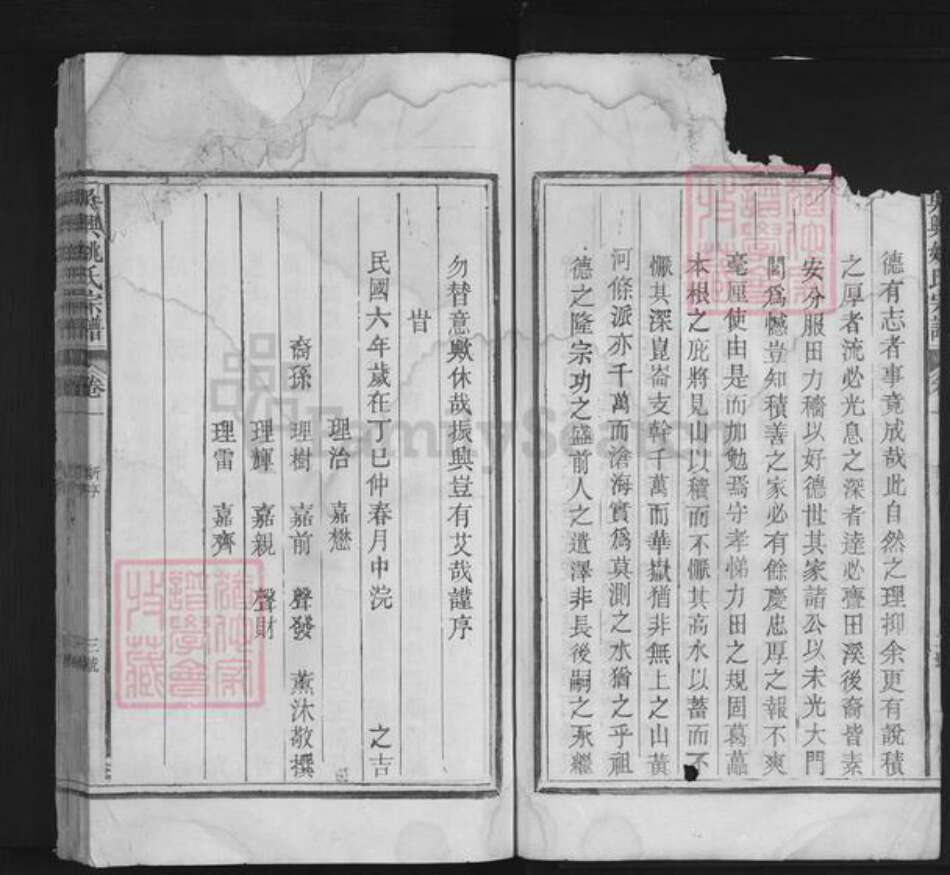 德有志者事竟成哉此自然之理抑余更有說積
之厚者流必光息之深者達必亹田溪後裔皆素
安分服田力穡以好德世其家諸公以未光大門
閭爲憾豈知積善之家必有餘慶忠厚之報不爽
毫厘使由是而加勉焉守孝悌力田之規固葛藟
本根之庇將見山以積而不懨其高水以蓄而不
懨其深崑崙支幹千萬而華嶽猶非無上之山黃
河條派亦千萬而滄海實爲莫測之水猶之乎祖
德之隆宗功之盛前人之遺澤非長後嗣之承繼
勿替意歟休哉振興豈有艾哉謹序
旹
民國六年歲在丁巳仲春月中浣 之吉
理治 嘉懋
裔孫 理樹 嘉前 聲發 薰沐敬撰
理輝 嘉親 聲財
理雷 嘉齊
吳興姚氏宗譜 卷一 新序 三號
譜學會
收藏
FamilySearch